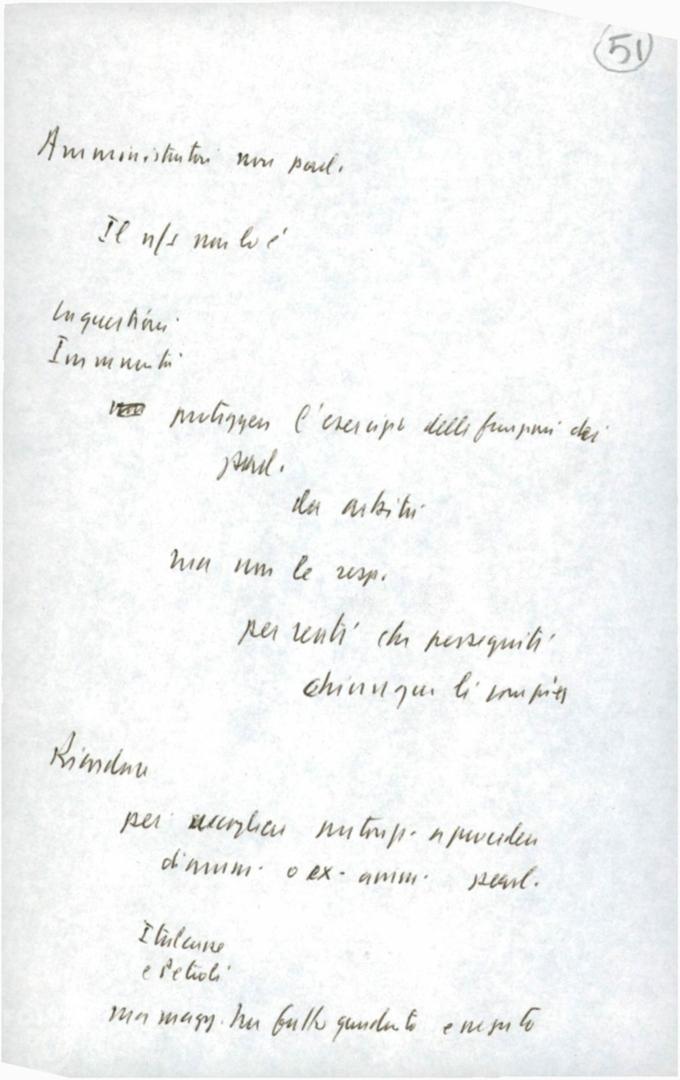 51
Amministratori non parl.
Il n/s non lo è
Inquestioni
Immunità
proteggere l'esercizio delle funzioni dei
parl.
da arbitri
ma non le resp.
per reati che perseguiti
chiunque li compia
Ricordare
per accogliere autorizz. a procedere
di amm. o ex-amm. parl.
Italcasse
e Petroli
ma magg. ha fatto quadrato